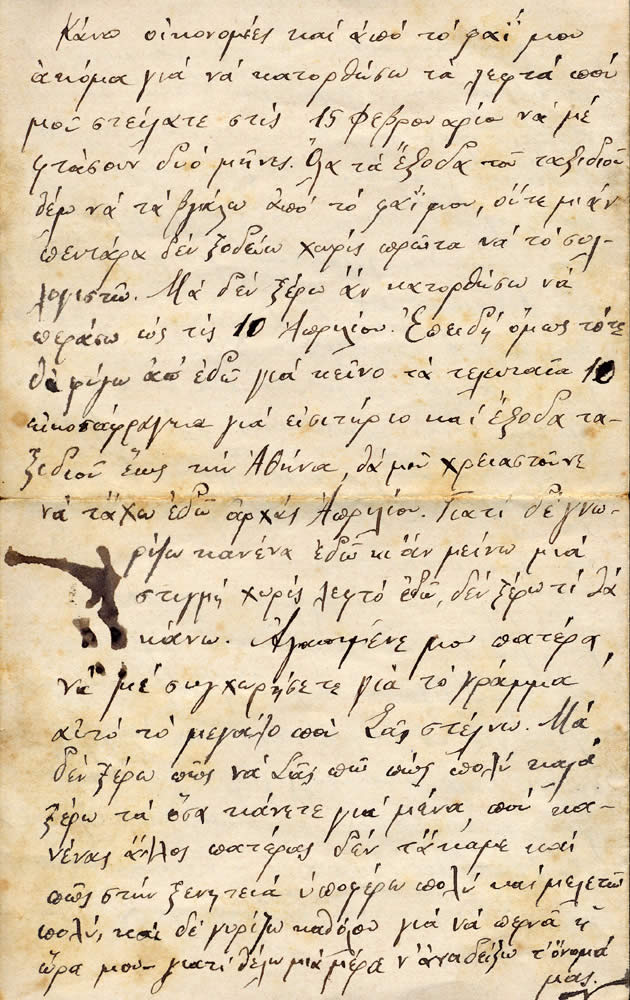 Κάνω οἰκονομίες καί ἀπό τό φαΐ μου
ἀκόμα γιά νά κατορθώσω τά λεφτά πού
μοῦ στείλατε στίς 15 Φεβρουαρίου νά μέ
φτάσουν δυό μῆνες. Ὅλα τά ἔξοδα τοῦ ταξιδιοῦ
θέλω νά τά βγάλω ἀπό τό φαΐ μου, οὔτε μιάν
πεντάρα δέν ξοδεύω χωρίς πρῶτα νά τό συλ-
λογιστῶ. Μά δέν ξέρω ἄν κατορθώσω νά
περάσω ὡς τίς 10 Ἀπριλίου. Ἐπειδή ὅμως τότε
θά φύγω ἀπ' ἐδῶ γιά κεῖνο τά τελευταῖα 10
εἰκοσάφραγκα γιά εἰσιτήριο καί ἔξοδα τα-
ξιδιοῦ ἕως τήν Ἀθήνα, θά μοῦ χρειαστοῦνε
νά τἄχω ἐδῶ ἀρχάς Ἀπριλίου. Γιατί δέ γνω-
ρίζω κανένα ἐδῶ κι ἄν μείνω μιά
στιγμή χωρίς λεφτό ἐδῶ, δέν ξέρω τί θά
κάνω. Ἀγαπημένε μου πατέρα,
νά μέ συγχωρήσετε γιά τό γράμμα
αὐτό τό μεγάλο πού Σᾶς στέλνω. Μά
δέν ξέρω πῶς νά Σᾶς πῶ πώς πολύ καλά
ξέρω τά ὅσα κάνετε γιά μένα, πού κα-
νένας ἄλλος πατέρας δέν τἄκαμε καί
πῶς στήν ξενητειά ὑποφέρω πολύ καί μελετῶ
πολύ, καί δέ γυρίζω καθόλου γιά νά περνᾶ ἡ
ὥρα μου- γιατί θέλω μιά μέρα ν' ἀναδείξω τ' ὄνομά
μας.